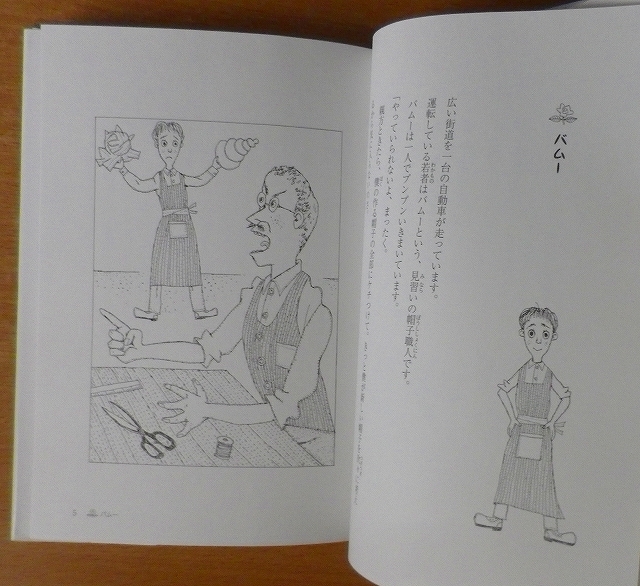 バムー
広い街道を一台の自動車が走っています。
運転している若者はバムーという、見習いの帽子職人です。
バムーは一人でプンプンいきまいています。
「やっていられないよ、まったく。
親方ときたら、僕の作る帽子の全部にケチつけて、
5 バムー